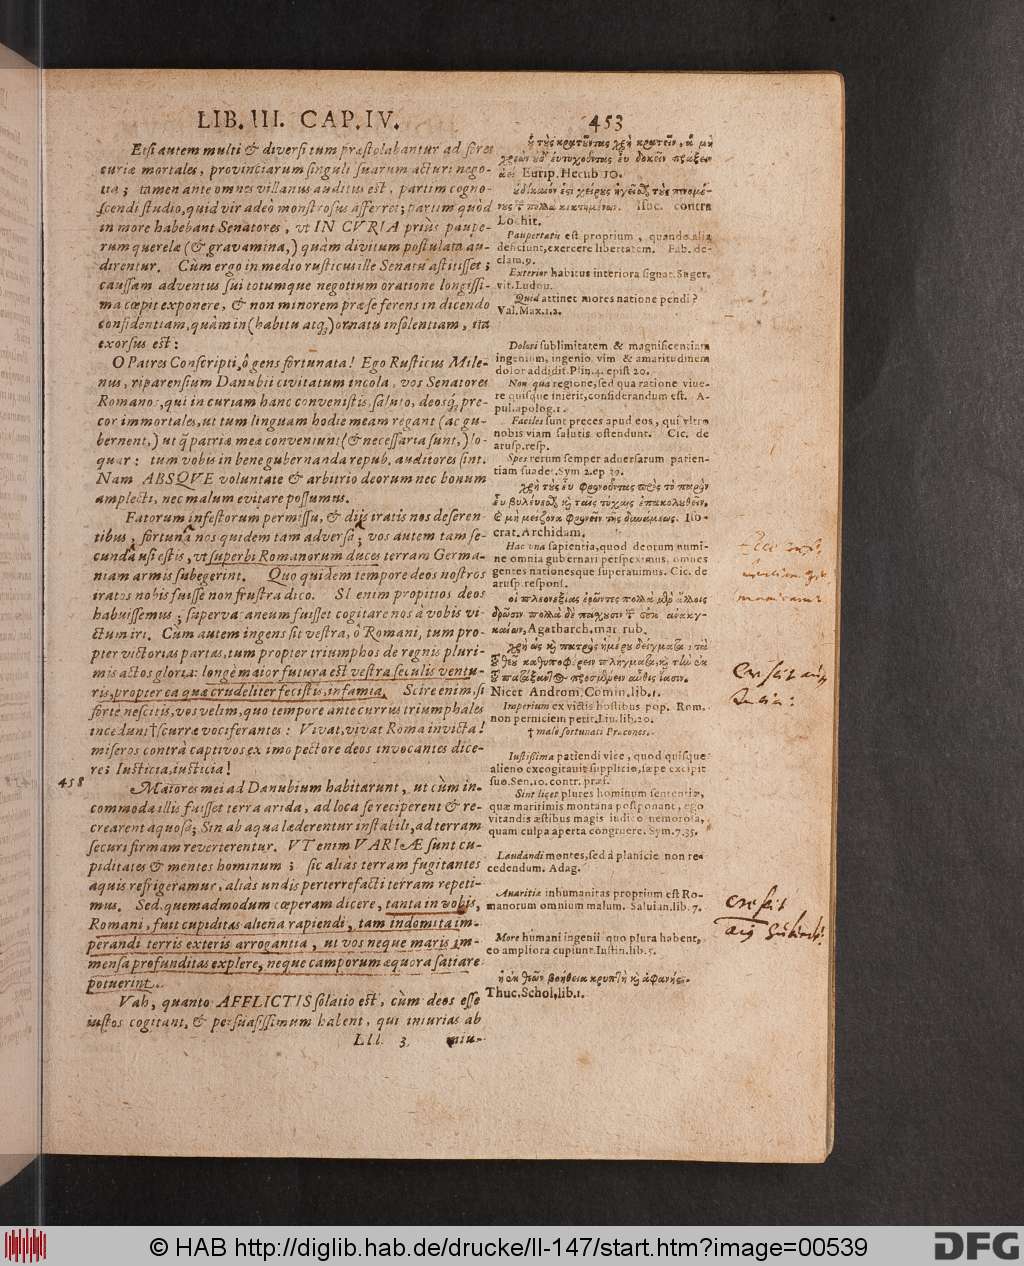 LIB. III. CAP. IV. 453
Etsi autem multi & diversi tum præstolabantur ad fores
curiæ mortales, provinciarum singuli suarum acturi nego-
tia; tamen ante omnes villanus auditus est, partim cogno-
scendi studio, quid vir adeò monstrosus afferret; partim quòd
in more habebant Senatores, ut IN CVRIA prius paupe-
rum querelæ (& gravamina,) quàm divitum postulata au-
direntur. Cùm ergo in medio rusticus ille Senatu astitisset;
caussam adventus sui totumque negotium oratione longissi-
ma cœpit exponere, & non minorem præ se ferens in dicendo
confidentiam, quàm in (habitu atq;) ornatu insolentiam, ita
exorsus est:
O Patres Conscripti, ô gens fortunata! Ego Rusticus Mile-
nus, ripariensium Danubii civitatum incola, vos Senatores
Romanos, qui in curiam hanc convenistis, saluto, deosq; pre-
cor immortales, ut tum linguam hodie meam regant (ac gu-
bernent,) ut q; patriæ meæ conveniunt (& necessaria sunt,) lo-
quar: tum vobis in bene gubernanda repub. auditores sint.
Nam ABSQVE voluntate & arbitrio deorum nec bonum
amplecti, nec malum evitare possumus.
Fatorum infestorum permissu, & diis iratis nos deseren-
tibus, fortuna nos quidem tam adversa; vos autem tam se-
cunda usi estis, ut superbi Romanorum duces terram Germa-
niam armis subegerint. Quo quidem tempore deos nostros
iratos nobis fuisse non frustra dico. SI enim propitios deos
habuissemus; supervacaneum fuisset cogitare nos à vobis vi-
ctum iri. Cùm autem ingens sit vestra, ô Romani, tum pro-
pter victorias partas, tum propter triumphos de regnis pluri-
mis actos gloria: longè maior futura est vestra seculis ventu-
ris, propter ea quæ crudeliter fecistis, infamia. Scire enim, si
forte nescitis, vos velim, quo tempore ante currus triumphales
incedunt † scurræ vociferantes: Vivat, vivat Roma invicta!
miseros contrà captivos ex imo pectore deos invocantes dice-
re; Iustitia, iustitia!
458
Maiores mei ad Danubium habitarunt, ut cùm in-
commoda illis fuisset terra arida, ad loca se reciperent & re-
crearent aquosa; Sin ab aqua læderentur instabili, ad terram
securi firmam reverterentur. VT enim VARIÆ sunt cu-
piditates & mentes hominum; sic aliàs terram fugitantes
aquis refrigeramur, aliàs undis perterrefacti terram repeti-
mus. Sed quemadmodum cœperam dicere, tanta in vobis,
Romani, fuit cupiditas aliena rapiendi, tam indomita im-
perandi terris exteris arrogantia, ut vos neque maris im-
mensa profunditas explere, neque camporum æquora satiare
potuerint.
Vah, quanto AFFLICTIS solatio est, cùm deos esse
iustos cogitant, & persuasissimum habent, qui iniurias ab
Lll 3 miu-
Eurip. Hecub 10.
Isoc. contra
Lochit.
Paupertatis est proprium, quando alia
deficiunt, exercere libertatem. Fab. de-
clam. 9.
Exterior habitus interiora signat. Suger.
vit. Ludou.
Quid attinet mores natione pendi?
Val. Max. 1, 2.
Dolori sublimitatem & magnificentiam
ingenium, ingenio vim & amaritudinem
dolor addidit. Plin. 4. epist 20.
Non qua regione, sed qua ratione vive-
re quisque inierit, considerandum est. A-
pul. apolog. 1.
Faciles sunt preces apud eos, qui ultro
nobis viam salutis ostendunt. Cic. de
arusp. resp.
Spes rerum semper adversarum patien-
tiam suadet. Sym 2. ep 39.
Iso-
crat. Archidam.
Hac una sapientia, quod deorum numi-
ne omnia gubernari perspeximus, omnes
gentes nationesque superavimus. Cic. de
arusp. respons.
Agatharch. mar. rub.
Nicet Androm. Comin. lib. 1.
Imperium ex victis hostibus pop. Rom.
non perniciem petit. Liu. lib. 20.
† malè fortunati Præcones.
Iustissima patiendi vice, quod quisque
alieno excogitavit supplicio, sæpe excipit
suo. Sen. 10. contr. præf.
Sint licet plures hominum sententiæ,
quæ maritimis montana postponant, ego
vitandis æstibus magis iudico nemorosa,
quam culpa aperta congruere. Sym. 7. 35.
Laudandi montes, sed à planicie non re-
cedendum. Adag.
Avaritia inhumanitas proprium est Ro-
manorum omnium malum. Saluian. lib. 7.
More humani ingenii quo plura habent,
eo ampliora cupiunt. Iustin. lib. 5.
Thuc. Schol. lib. 1.
© HAB http://diglib.hab.de/drucke/ll-147/start.htm?image=00539
DFG